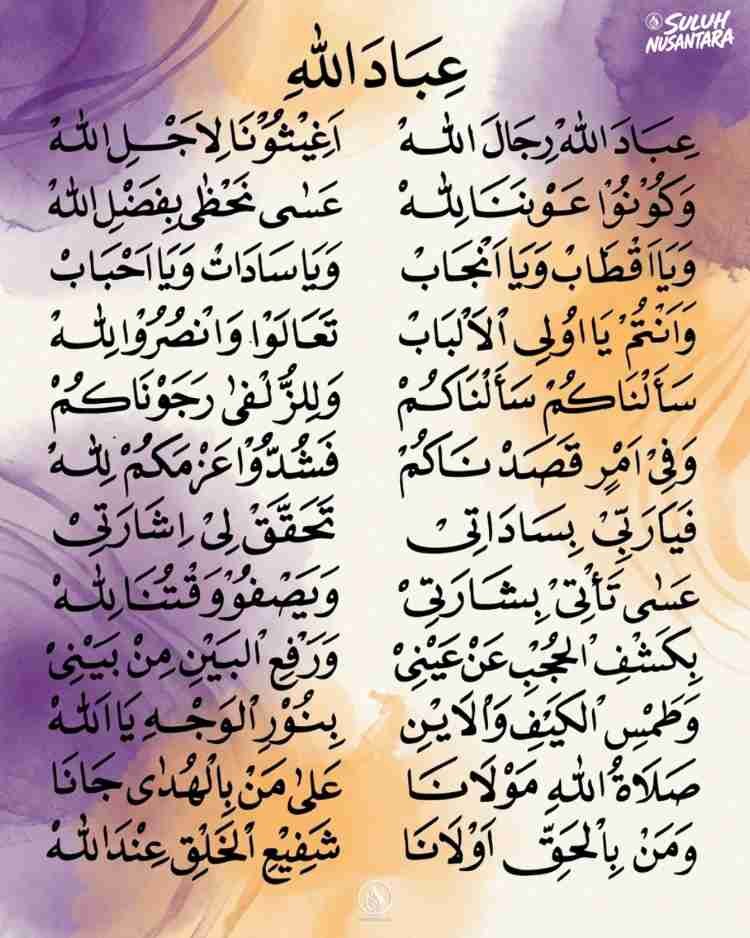 SULUH
NUSANTARA
عِبَادَ اللهِ
عِبَادَ اللهْ رِجَالَ اللهْ اَغِيْثُوْنَا لِاَجْلِ اللهْ
وَكُوْنُوْا عَوْنَنَا لِلهْ عَسٰى نَحْظٰى بِفَضْلِ اللهْ
وَيَا اَقْطَابْ وَيَا اَنْجَابْ وَيَا سَادَاتْ وَيَا اَحْبَابْ
وَاَنْتُمْ يَا اُولِى الْاَلْبَابْ تَعَالَوْا وَانْصُرُوْا لِلهْ
سَأَلْنَاكُمْ سَأَلْنَاكُمْ وَلِلزُّلْفٰى رَجَوْنَاكُمْ
وَفِيْ اَمْرٍ قَصَدْنَاكُمْ فَشُدُّوْا عَزْمَكُمْ لِلهْ
فَيَارَبِّيْ بِسَادَاتِيْ تَحَقَّقْ لِيْ اِشَارَتِيْ
عَسٰى تَأْتِيْ بِشَارَتِيْ وَيَصْفُوْ وَقْتُنَا لِلهْ
بِكَشْفِ الْحُجْبِ عَنْ عَيْنِيْ وَرَفْعِ الْبَيْنِ مِنْ بَيْنِيْ
وَطَمْسِ الْكَيْفِ وَالْاَيْنِ بِنُوْرِ الْوَجْهِ يَا اَللهْ
صَلَاةُ اللهِ مَوْلَانَا عَلٰى مَنْ بِالْهُدٰى جَانَا
وَمَنْ بِالْحَقِّ اَوْلَانَا شَفِيْعِ الْخَلْقِ عِنْدَ اللهْ